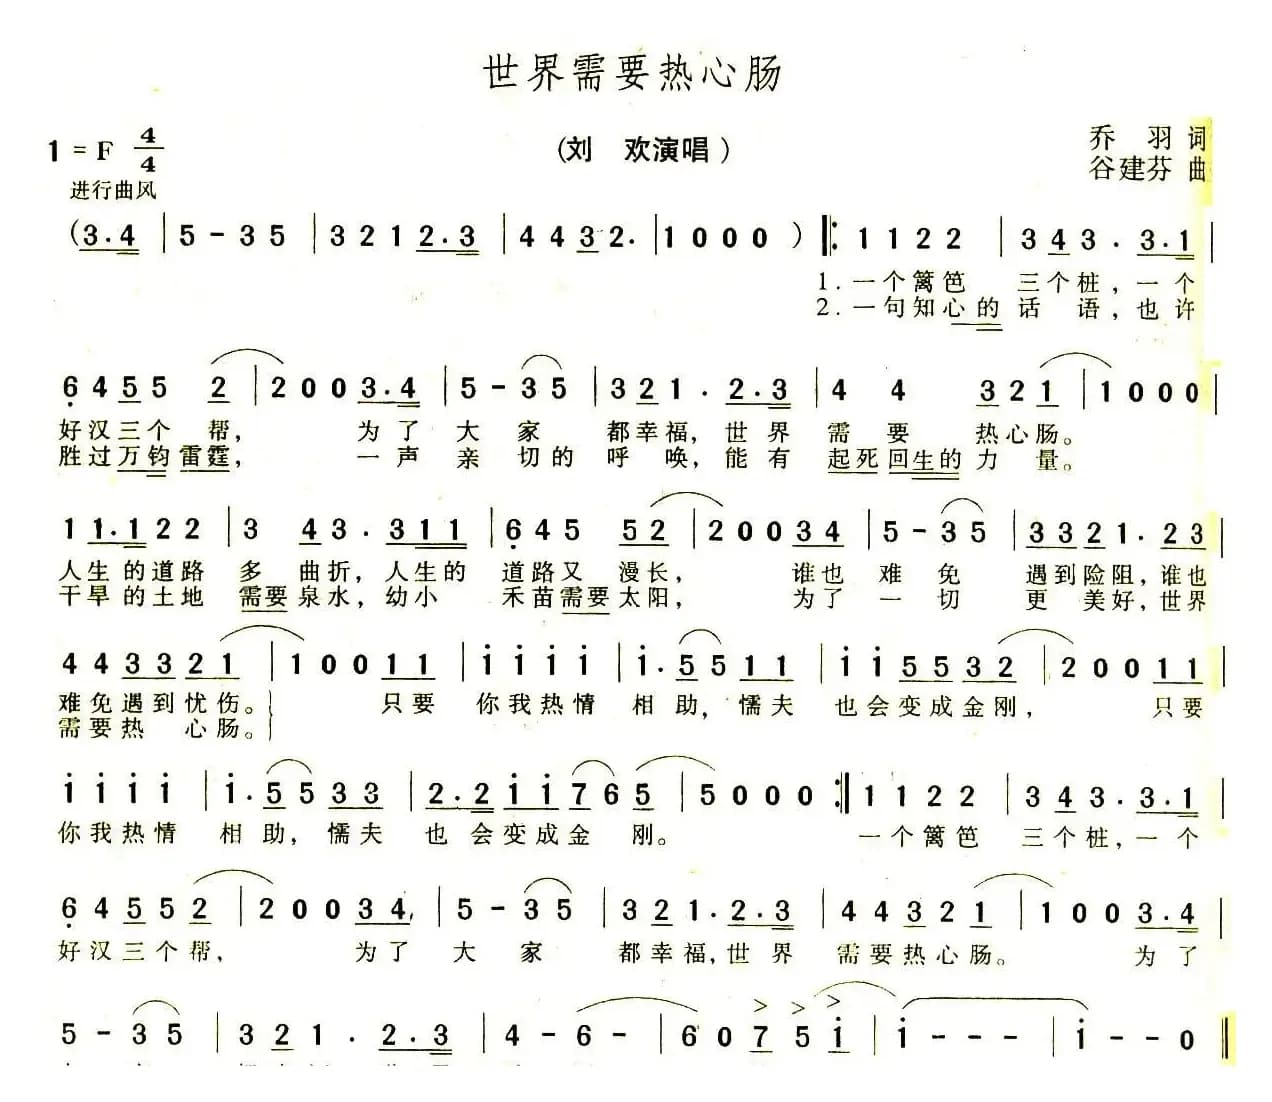 世界需要热心肠
1=F 4/4
(刘 欢演唱)
乔 羽 词
谷建芬 曲
进行曲风
(3.4 | 5 - 3 5 | 3 2 1 2.3 | 4 4 3 2. | 1 0 0 0 ) |: 1 1 2 2 | 3 4 3 . 3.1 |
1.一个篱笆 三个桩,一个
2.一句知心的 话 语,也许
6 4 5 5 2 | 2 0 0 3.4 | 5 - 3 5 | 3 2 1 . 2.3 | 4 4 3 2 1 | 1 0 0 0 |
好汉三个 帮, 为了 大 家 都幸福,世界 需 要 热心肠。
胜过万钧雷霆, 一声 亲 切的 呼 唤,能有 起死回生的力 量。
1 1.1 2 2 | 3 4 3 . 3 1 1 | 6 4 5 5 2 | 2 0 0 3 4 | 5 - 3 5 | 3 3 2 1 . 2 3 |
人生 的道路 多 曲折,人生的 道路又 漫长, 谁也 难 免 遇到险阻,谁也
干旱 的土地 需要泉水,幼小 禾苗需要太阳, 为了 一 切 更 美好,世界
4 4 3 3 2 1 | 1 0 0 1 1 | i i i i | i . 5 5 1 1 | i i 5 5 3 2 | 2 0 0 1 1 |
难免遇到忧伤。 只要 你我热情 相 助,懦夫 也会变成金刚, 只要
需要热 心肠。
i i i i | i . 5 5 3 3 | 2 . 2 i i 7 6 5 | 5 0 0 0 :| 1 1 2 2 | 3 4 3 . 3.1 |
你我热情 相 助,懦夫 也 会变成金 刚。 一个篱笆 三个桩,一个
6 4 5 5 2 | 2 0 0 3 4 | 5 - 3 5 | 3 2 1 . 2.3 | 4 4 3 2 1 | 1 0 0 3.4 |
好汉三个帮, 为了 大 家 都幸福,世界 需要热心肠。 为了
5 - 3 5 | 3 2 1 . 2.3 | 4 - 6 - | 6 0 7 5 i | i - - - | i - - 0 ‖